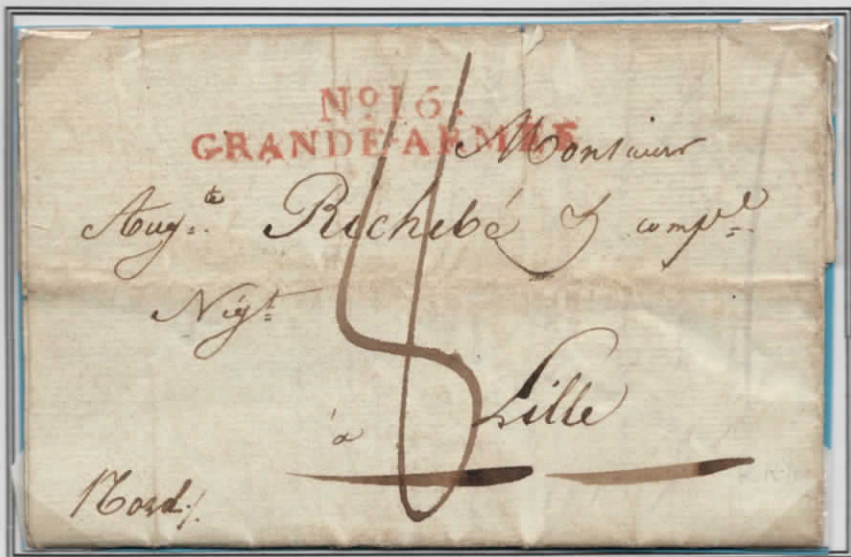 No 16.
GRANDE-ARMÉE
Monsieur
Augte Richebé & compe
Négt
à Lille
Nord/.